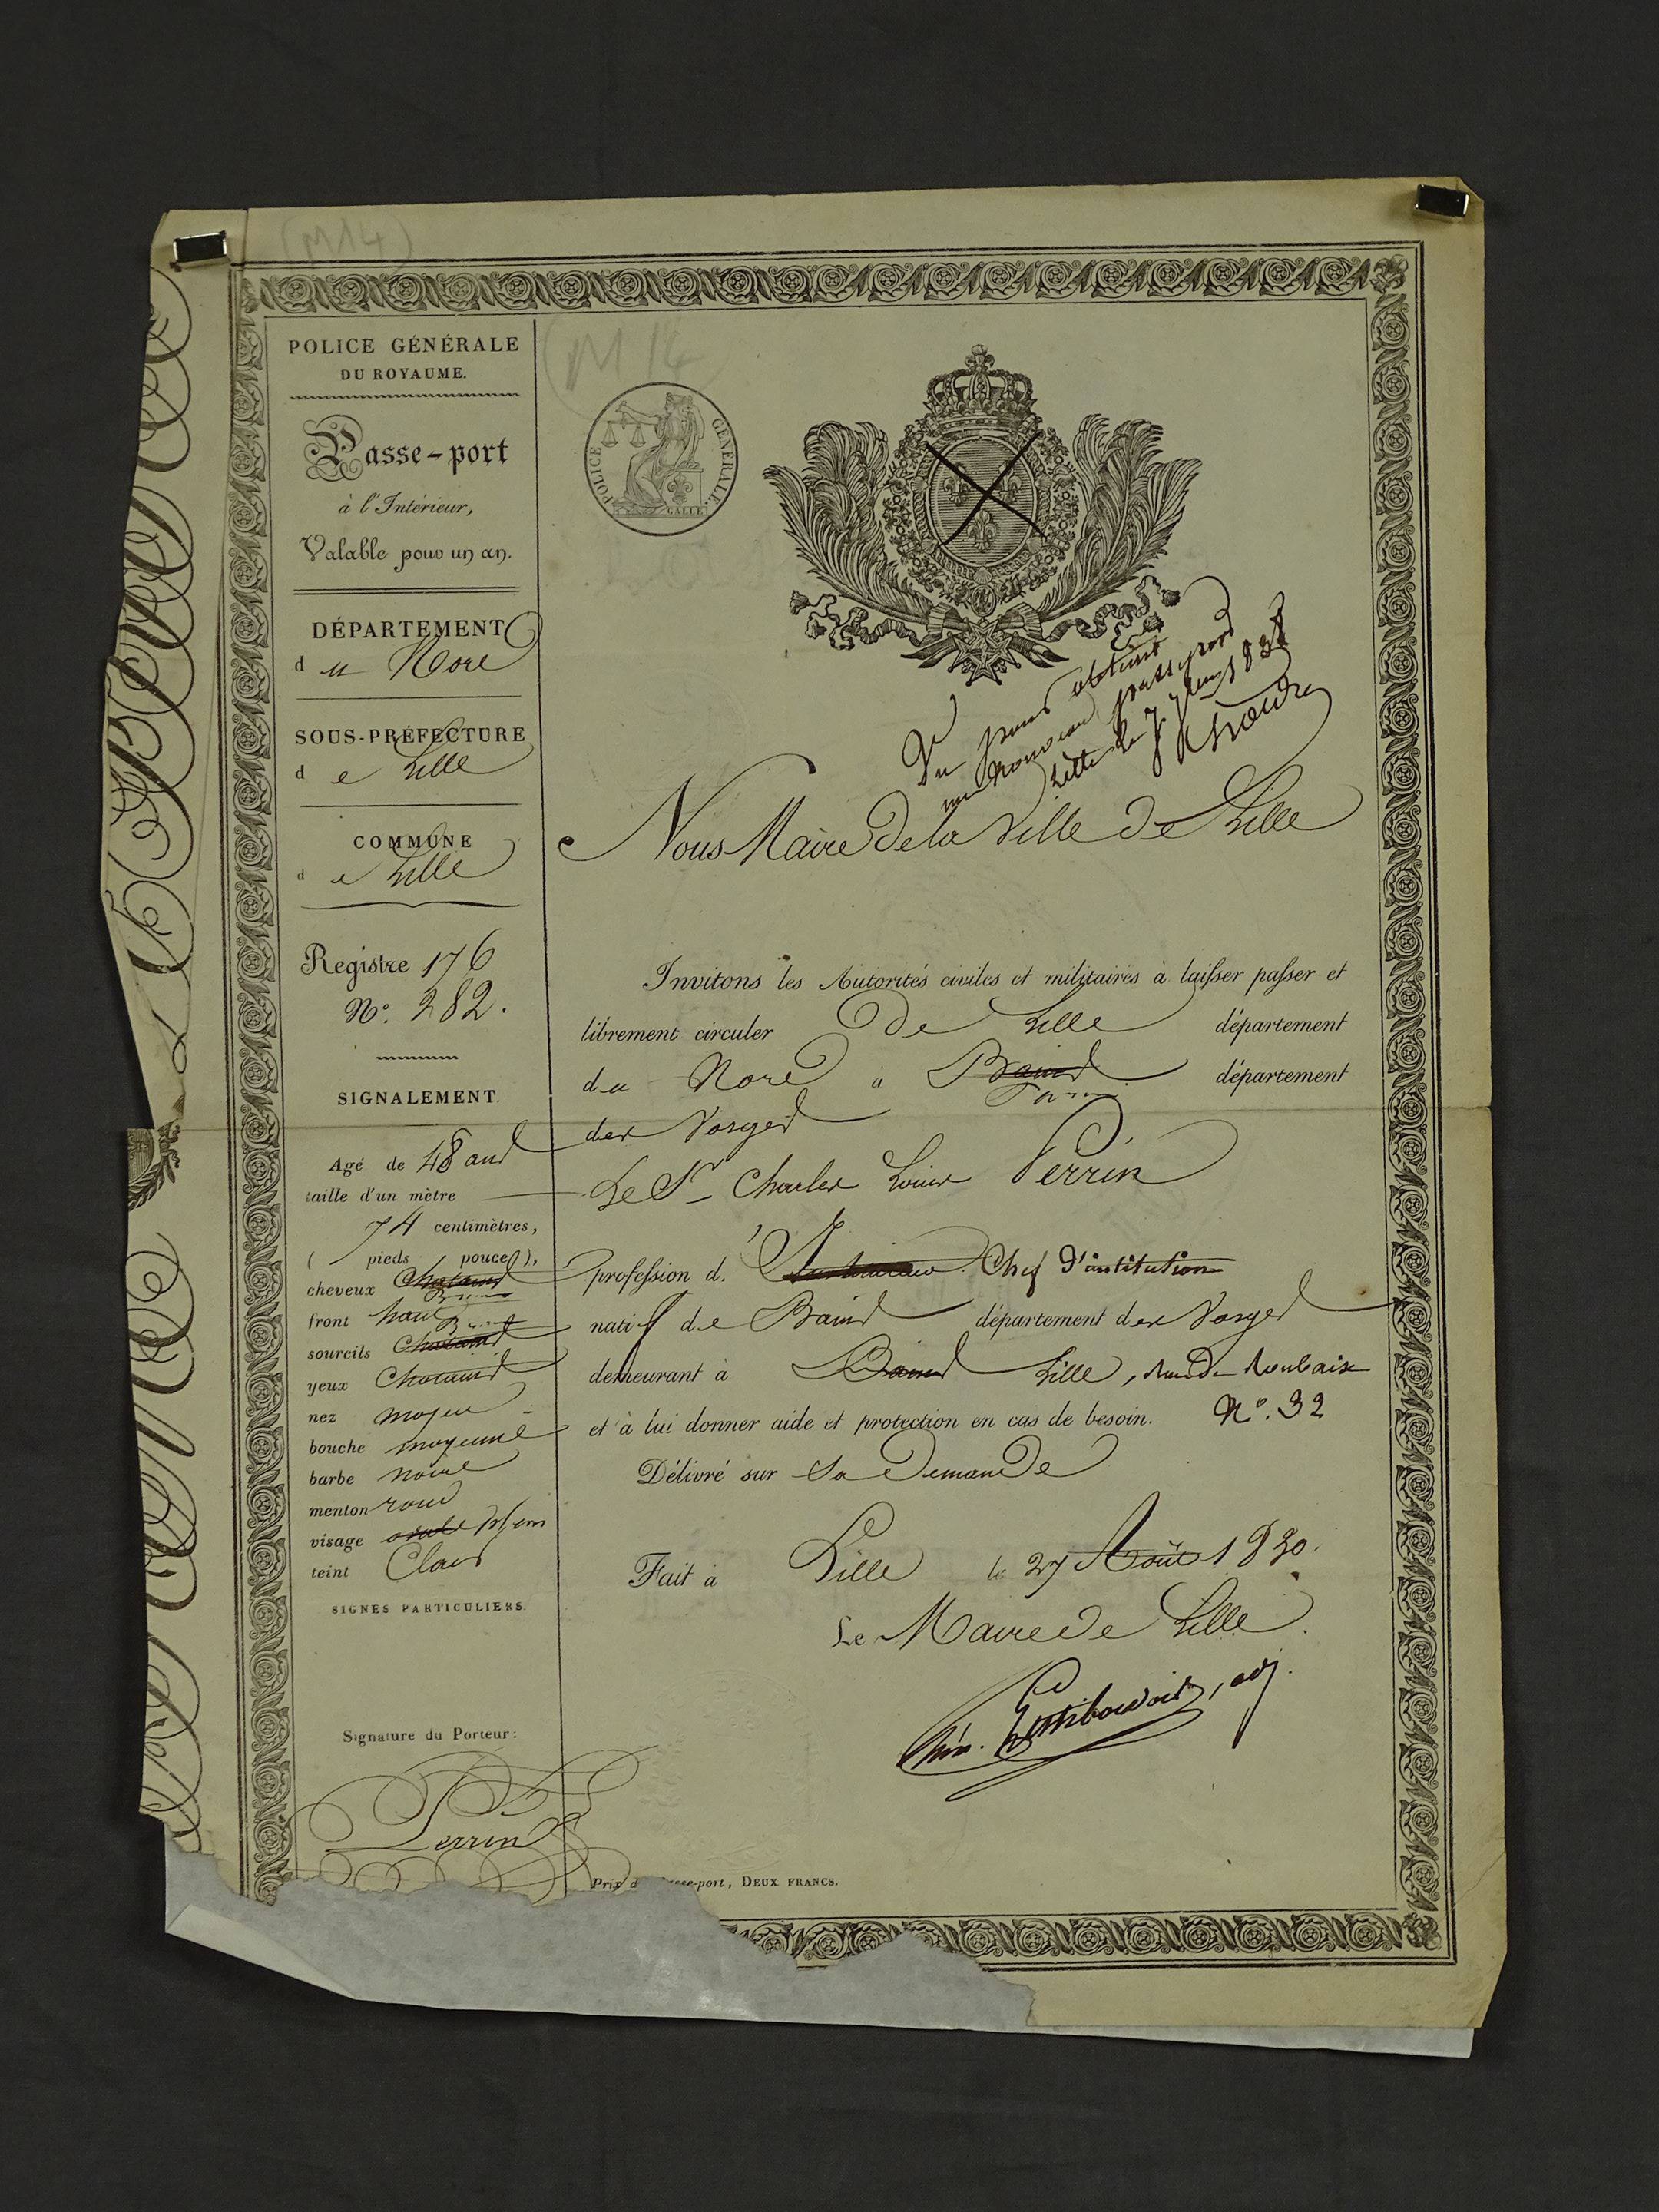 (M14)
POLICE GÉNÉRALE
DU ROYAUME.
Passe-port
à l'Intérieur,
Valable pour un an.
DÉPARTEMENT
du Nord
SOUS-PRÉFECTURE
de Lille
COMMUNE
de Lille
Registre 176
N°. 282.
SIGNALEMENT.
Agé de 48 ans
taille d'un mètre
74 centimètres,
( pieds pouces),
cheveux Chatains
front haut
sourcils Chatains
yeux Chatains
nez moyen
bouche moyenne
barbe noire
menton rond
visage ovale plein
teint Clair
SIGNES PARTICULIERS.
Signature du Porteur:
Perrin
(M14)
POLICE GÉNÉRALE.
GALLE
Vu pour obtenir
un nouveau passeport
Lille le 7
Nous Maire de la Ville de Lille
Invitons les Autorités civiles et militaires à laisser passer et
librement circuler De Lille département
du Nord à Bains département
des Vosges
Le Sr Charles Louis Perrin
profession d' Chef d'institution
natif de Bains département des Vosges
demeurant à Bains Lille, rue de Roubaix
N°. 32
et à lui donner aide et protection en cas de besoin.
Délivré sur sa Demande
Fait à Lille le 27 Août 1830.
Le Maire de Lille
Thém. Lestiboudois, adj.
Prix d sse-port, DEUX FRANCS.